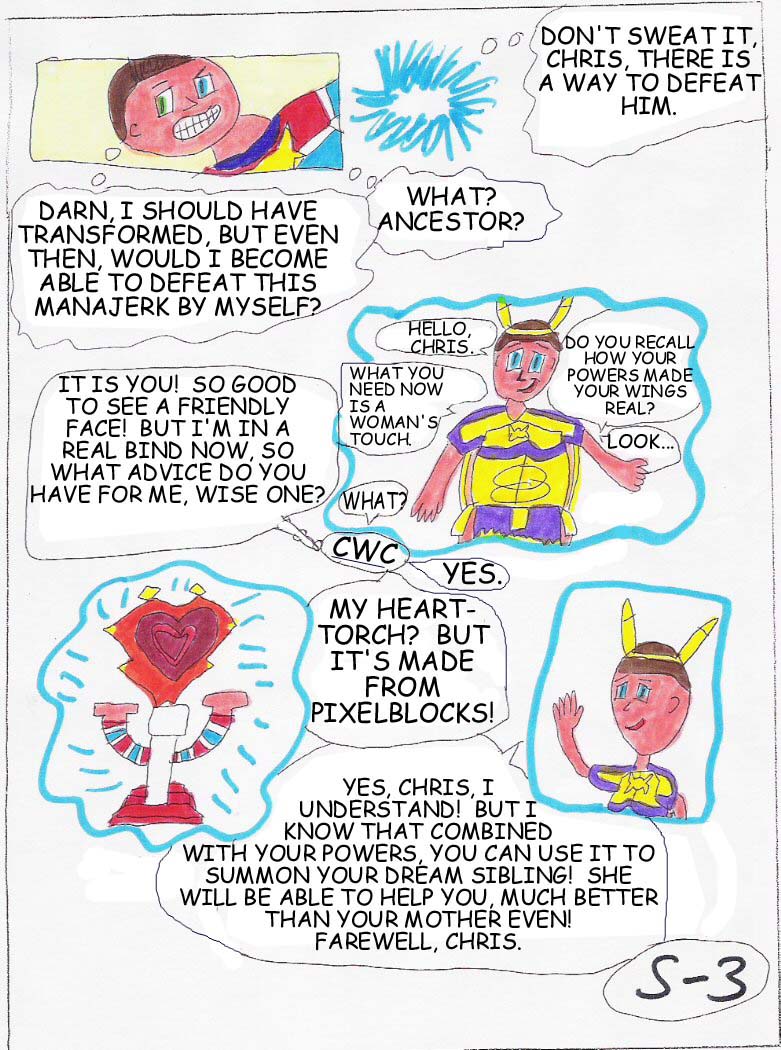 DON'T SWEAT IT,
CHRIS, THERE IS
A WAY TO DEFEAT
HIM.
DARN, I SHOULD HAVE
TRANSFORMED, BUT EVEN
THEN, WOULD I BECOME
ABLE TO DEFEAT THIS
MANAJERK BY MYSELF?
WHAT?
ANCESTOR?
HELLO,
CHRIS.
WHAT YOU
NEED NOW
IS A
WOMAN'S
TOUCH.
DO YOU RECALL
HOW YOUR
POWERS MADE
YOUR WINGS
REAL?
LOOK...
IT IS YOU! SO GOOD
TO SEE A FRIENDLY
FACE! BUT I'M IN A
REAL BIND NOW, SO
WHAT ADVICE DO YOU
HAVE FOR ME, WISE ONE?
WHAT?
CWC
YES.
MY HEART-
TORCH? BUT
IT'S MADE
FROM
PIXELBLOCKS!
YES, CHRIS, I
UNDERSTAND! BUT I
KNOW THAT COMBINED
WITH YOUR POWERS, YOU CAN USE IT TO
SUMMON YOUR DREAM SIBLING! SHE
WILL BE ABLE TO HELP YOU, MUCH BETTER
THAN YOUR MOTHER EVEN!
FAREWELL, CHRIS.
S-3